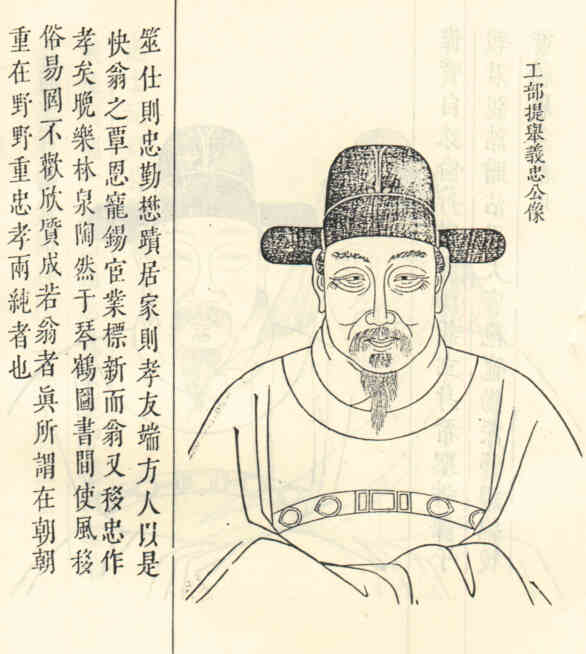 工部提舉義忠公像
筮仕則忠勤懋蹟居家則孝友端方人以是
快翁之覃恩寵錫宦業標新而翁又移忠作
孝矣晩樂林泉陶然于琴鶴圖書間使風移
俗易罔不歡欣質成若翁者眞所謂在朝朝
重在野野重忠孝兩純者也